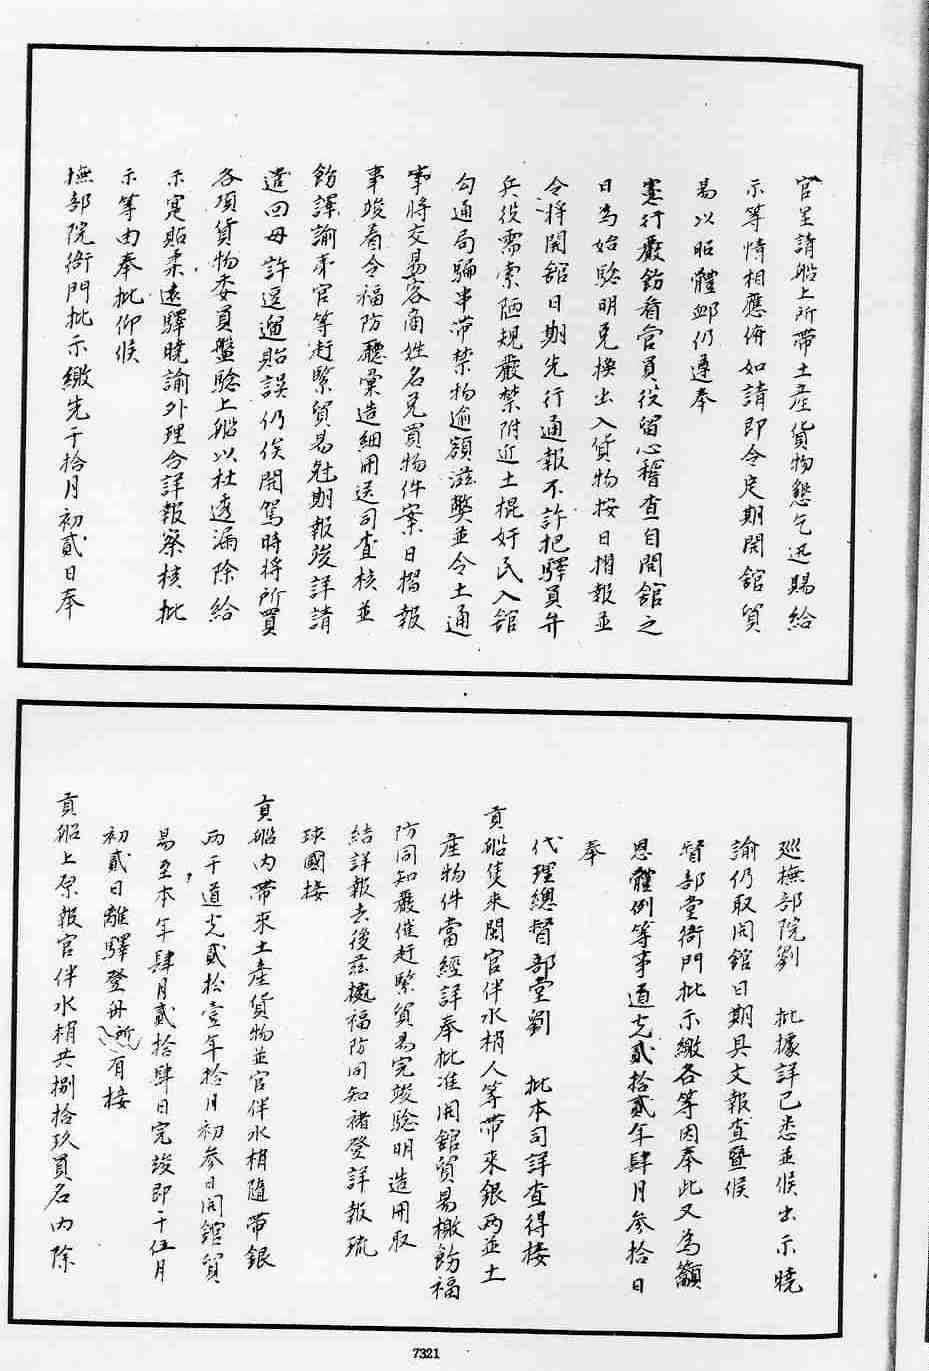 官呈請船上所帶土產貨物懇乞迅賜給
示等情相應俻如請即令定期開館貿
易以昭體卹仍遵奉
憲行嚴飭看官員役留心稽查自開館之
日為始驗明兌換出入貨物按日摺報並
令將開館日期先行通報不許把驛員弁
兵役需索陋規嚴禁附近土棍奸民入舘
勾通局騙串帶禁物逾額滋獘並令土通
事將交易客商姓名兌買物件案日摺報
事竣看令福防廳彙造細冊送司查核並
飭譯諭來官等赶緊貿易尅期報竣詳請
遣回毋許逗遛貽誤仍俟開駕時將所買
各項貨物委員盤驗上船以杜透漏除給
示寬貽柔遠驛曉諭外理合詳報察核批
示等由奉批仰候
撫部院衙門批示繳先于拾月初貳日奉
巡撫部院劉 批據詳已悉並候出示曉
諭仍取開館日期具文報查暨候
督部堂衙門批示繳各等因奉此又為籲
恩體例等事道光貳拾貳年肆月參拾日
奉
代理總督部堂劉 批本司詳查得接
貢船隻來閩官伴水梢人等帶來銀兩並土
產物件當經詳奉批准開舘貿易檄飭福
防同知嚴催赶緊貿易完竣驗明造冊取
結詳報去後茲據福防同知禇登詳報琉
球國接
貢船內帶來土產貨物並官伴水梢隨帶銀
兩于道光貳拾壹年拾月初參日開館貿
易至本年肆月貳拾肆日完竣即于伍月
初貳日離驛登舟所有接
貢船上原報官伴水梢共捌拾玖員名內除
7321